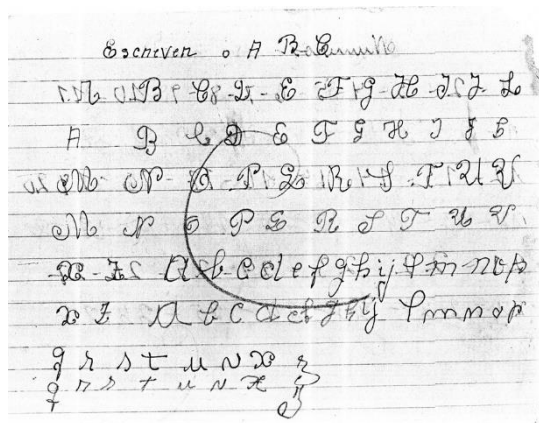 Escreven o A B C
A B C D E F G H I J L
A B C D E F G H I J L
M N O P Q R S T U V
M N O P Q R S T U V
X Z a b c d e f g h i j l m n o p
x z a b c d e f g h i j l m n o p
q r s t u v x z
q r s t u v x z